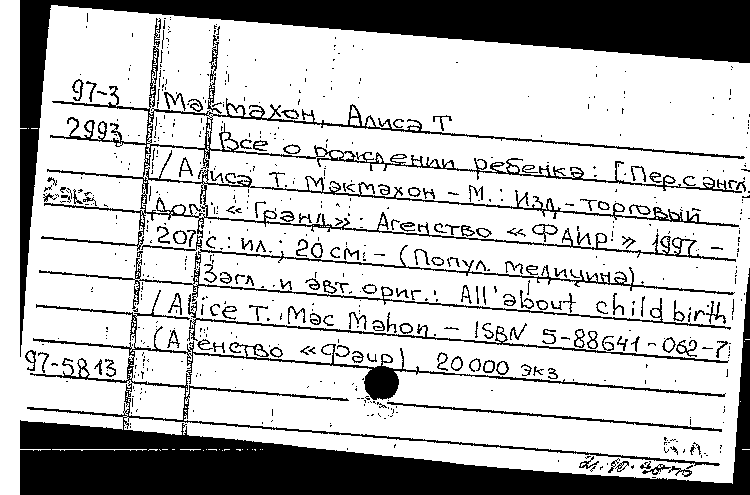 97-3
2993
2экз.
Макмахон, Алиса Т
Все о рождении ребенка: [Пер. с англ.
/ Алиса Т. Макмахон - М.: Изд.-торговый
дом «Гранд»: Агенство «ФАИР», 1997. -
207 с.: ил.; 20 см. - (Попул. медицина).
Загл. и авт. ориг.: All about childbirth
/ Alice T. Mac Mahon. - ISBN 5-88641-062-7
(Агенство «Фаир»), 20000 экз.
97-5813
К.Л.